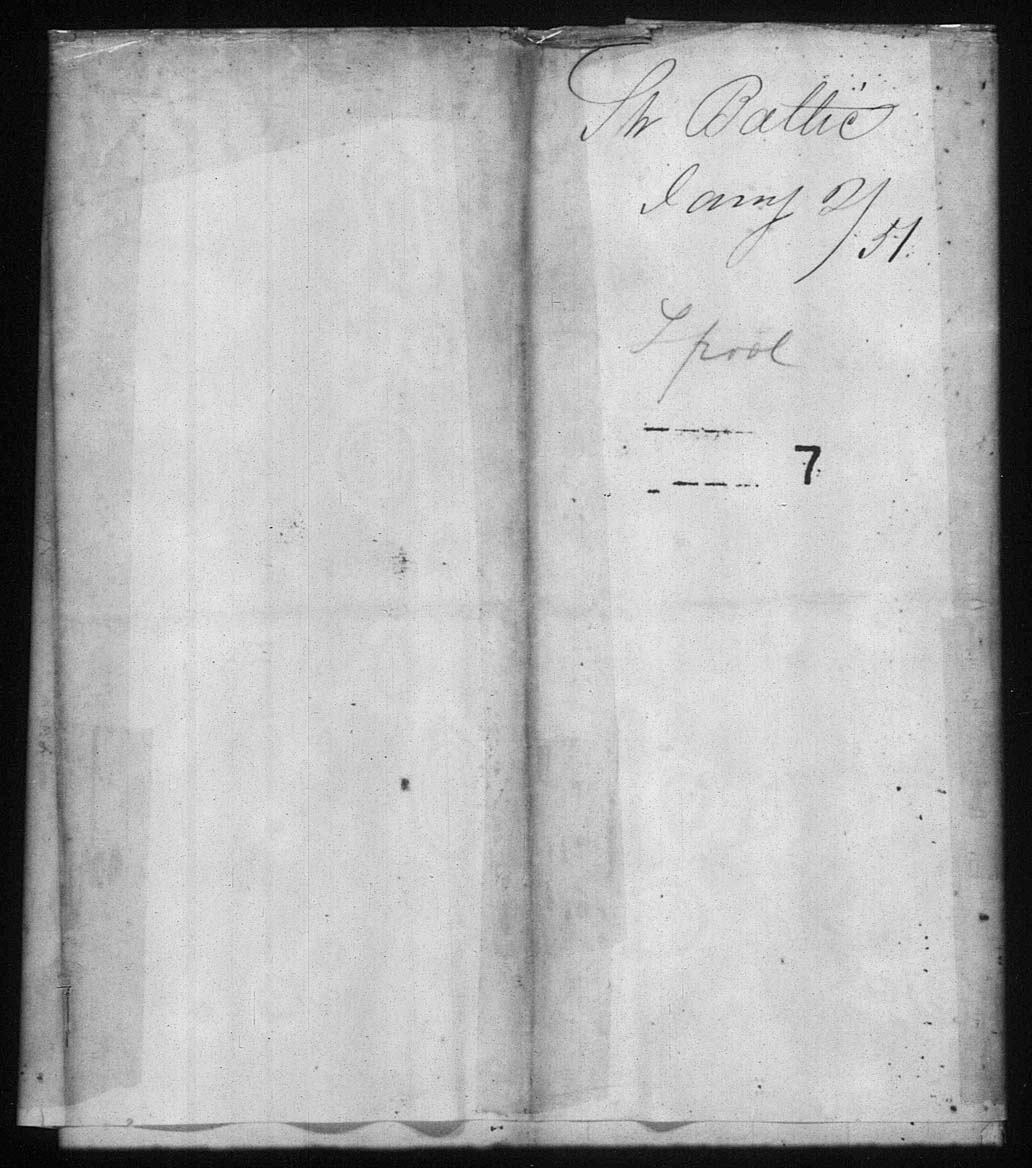 Sh Baltic
Jany 2/51
Lpool
7